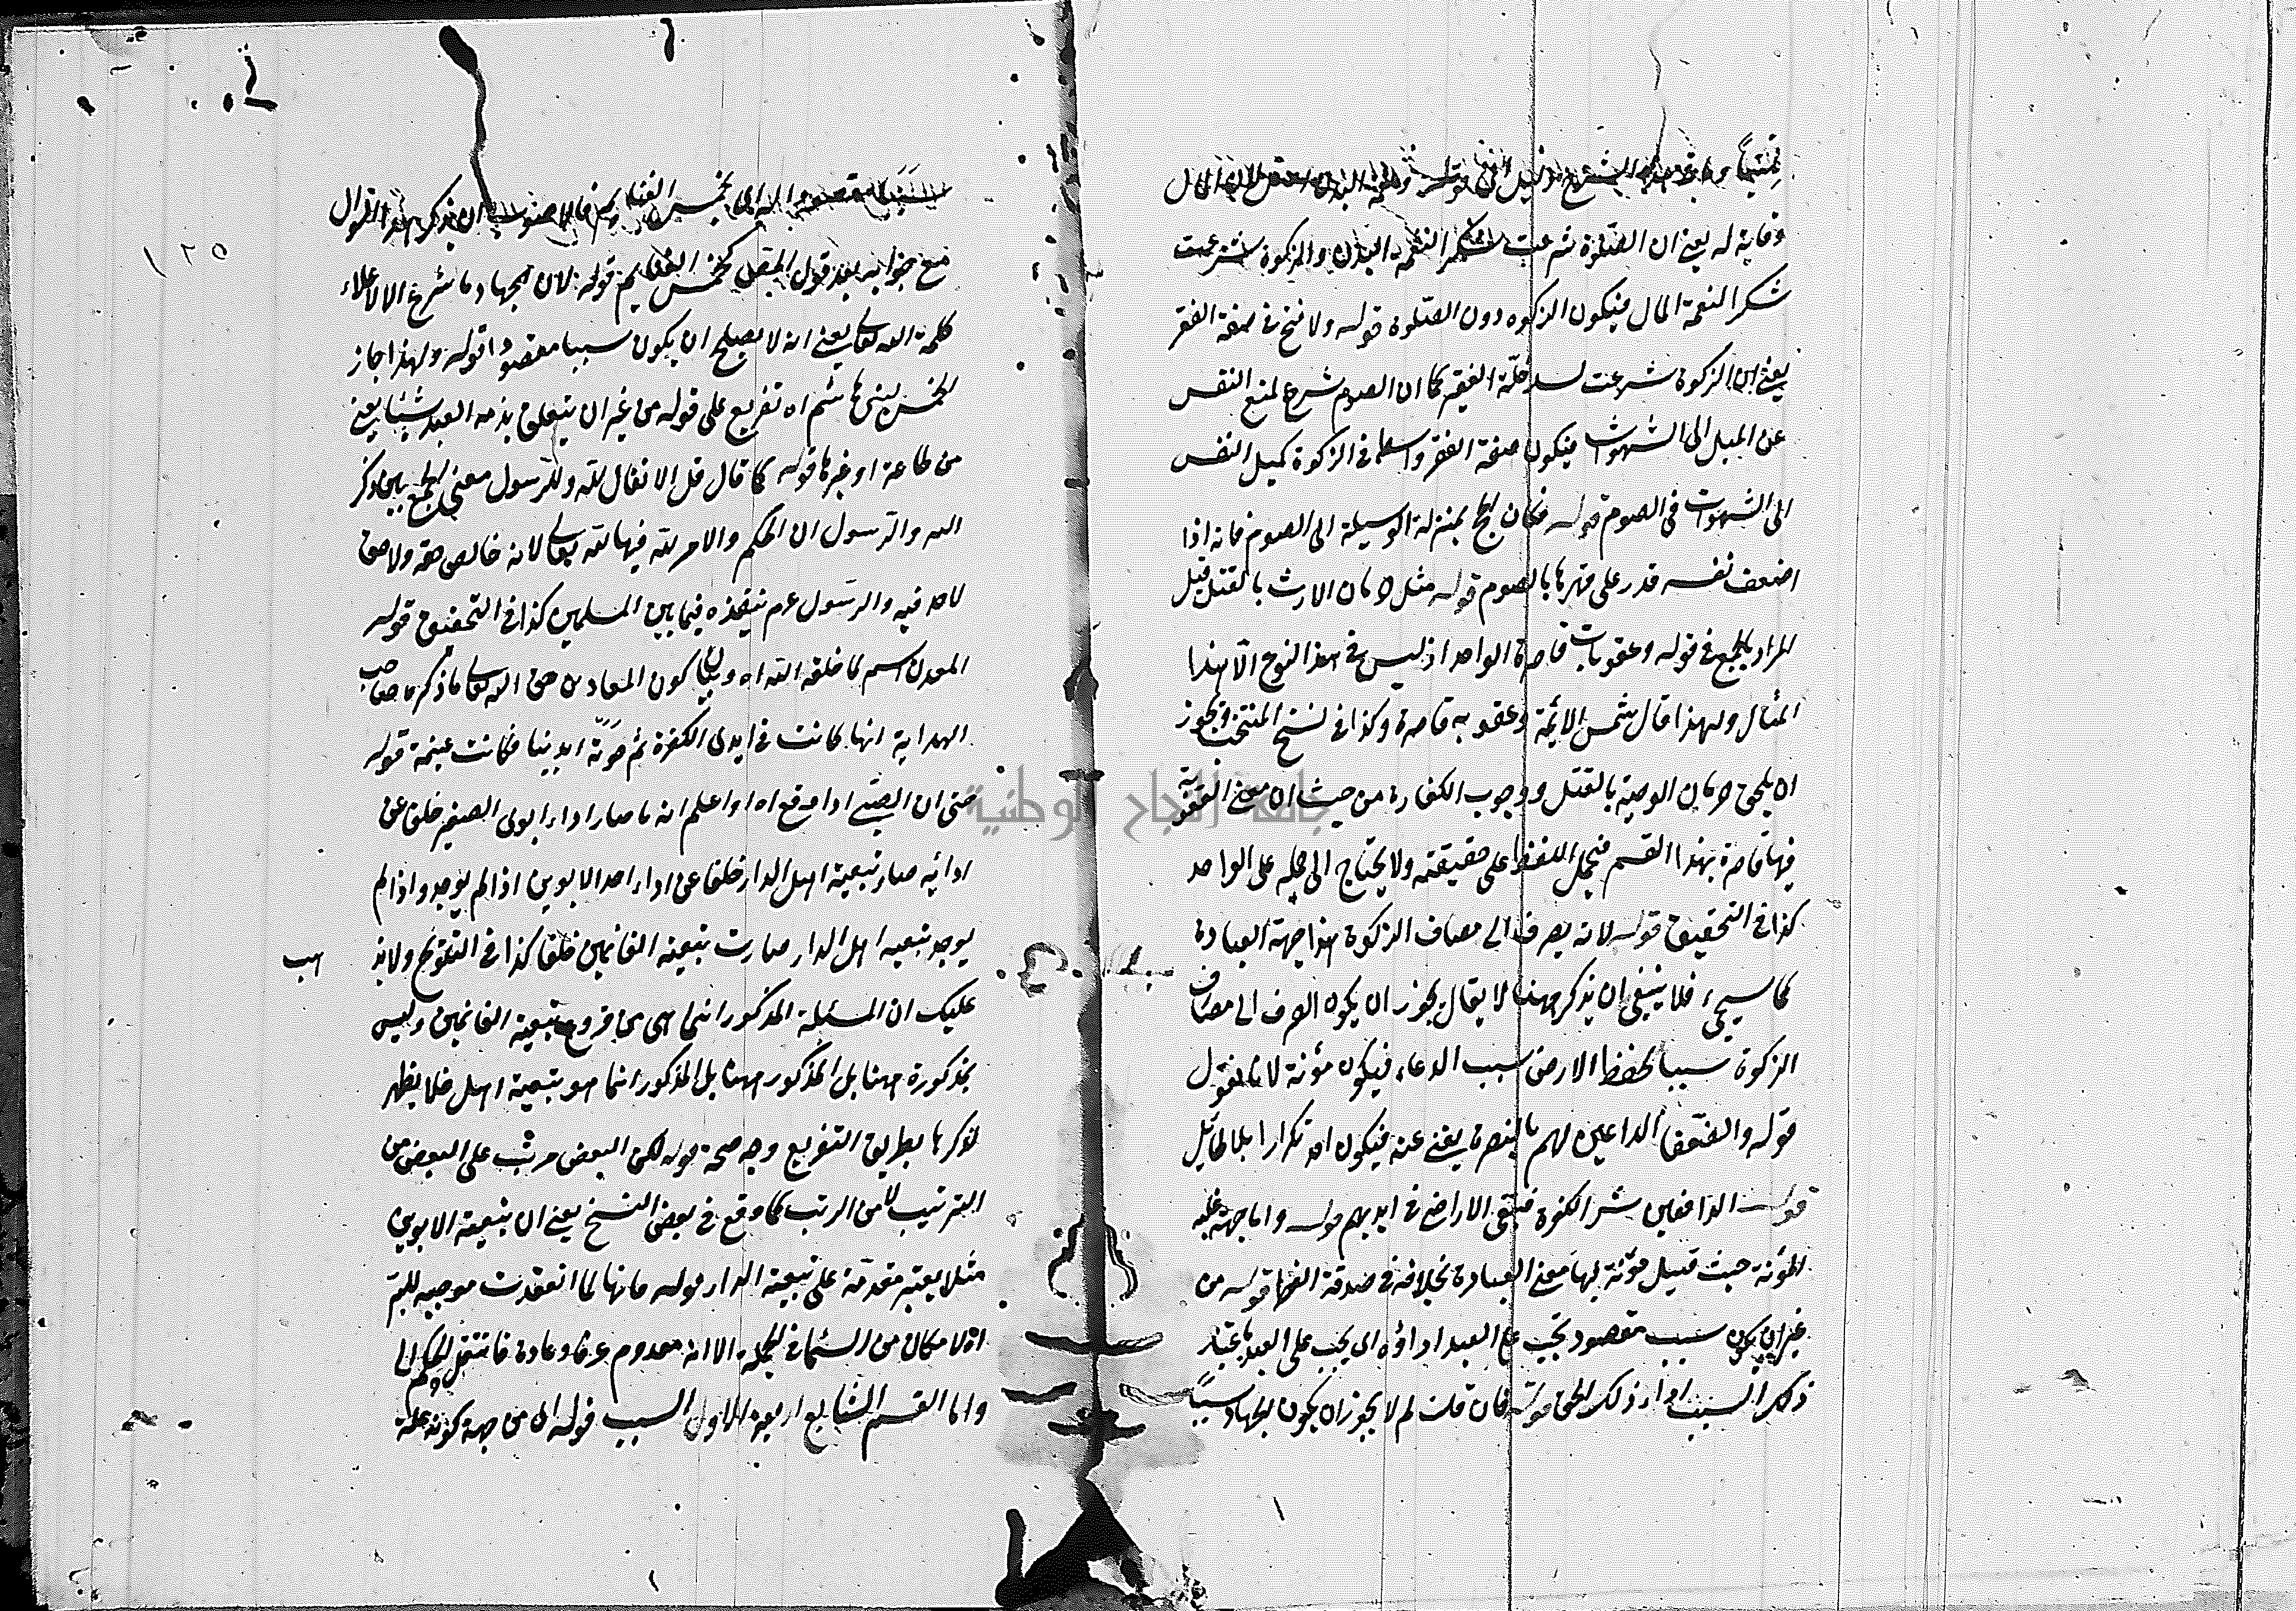 وقاية له يعني ان الصلوة شرعت شكر النعمة البدن والزكوة شرعت
شكر النعمة المال فيكون الزكوه دون الصلوة قوله ولا في صفة الفقر
يعني ان الزكوة شرعت لسد خلة الفقير كما ان الصوم شرع لمنع النفس
عن الميل الى الشهوات فيكون صفة الفقر واسطة في الزكوة كميل النفس
الى الشهوات في الصوم قوله فكان الحج بمنزلة الوسيلة الى الصوم فانه اذا
اضعف نفسه قدر على قهرها بالصوم قوله مثل حرمان الارث بالقتل قيل
المراد بالجمع في قوله وعقوبات قاصرة الواحد اذ ليس في هذا النوع الا هذا
المثال ولهذا قال شمس الائمة وعقوبه قاصرة وكذا في نسخ المنتخب ويجوز
ان يلحق حرمان الوصية بالقتل ووجوب الكفارة من حيث ان معنى العقوبة
فيها قاصرة بهذا القسم فيحمل اللفظ على حقيقته ولا يحتاج الى حمله على الواحد
كذا في التحقيق قوله لانه يصرف الى مصارف الزكوة هذا جهة العبادة
كما سيجيء فلا ينبغي ان يذكر ههنا لا يقال يجوز ان يكون الصرف الى مصارف
الزكوة سببا لحفظ الارض بسبب الدعاء فيكون مؤنة لانا نقول
قوله والضعفاء الداعين لهم بالنصرة يغني عنه فيكون تكرارا بلا طائل
قوله الدافعين شر الكفرة فتبقى الاراضي في ايديهم قوله واما جهة غلبه
المؤنة حيث قيل مؤنة فيها معنى العبادة بخلافه في صدقة الفطر قوله من
غير ان يكون سبب مقصود يجب على العبد اداؤه اي يجب على العبد باعتبار
ذلك السبب اداء ذلك الحق قوله فان قلت لم لا يجوز ان يكون الجهاد سببا
١٢٥
مقصودا لخمس الغنايم فالاصوب ان يذكر هذا السؤال
مع جوابه بعد قول المص كخمس الغنايم قوله لان الجهاد ما شرع الا لاعلاء
كلمة الله تعالى يعني انه لا يصلح ان يكون سببا مقصودا قوله ولهذا جاز
الخمس لبني هاشم اه تفريع على قوله من غير ان يتعلق بذمه العبد شيئا يعني
من طاعة او غيرها قوله كما قال قل الانفال لله وللرسول معنى الجمع بين ذكر
الله والرسول ان الحكم والامر لله فيها لله تعالى لانه خالص حقه ولا حق
لاحد فيه والرسول عم ينفذه فيما بين المسلمين كذا في التحقيق قوله
المعدن اسم لما خلقه الله اه كون المعادن حق الله تعالى ما ذكره صاحب
الهداية انها كانت في ايدي الكفرة ثم حوته ايدينا فكانت غنيمة قوله
حتى ان الصبي اه واعلم انه ما صار اداء ابوى الصغير خلق عن
ادائه صار تبعية اهل الدار خلفا عن اداء احد الابوين اذا لم يوجد واذا لم
يوجد تبعيه اهل الدار صارت تبعية الغانمين خلفا كذا في التلويح ولا يذ
هب
عليك ان المسئلة المذكور انما هي من فروع تبعية الغانمين وليس
بمذكورة ههنا بل المذكور ههنا بل المذكور انما هو بتبعية اهل فلا يظهر
لذكرها بطريق التفريع وجه صحة قوله لكن البعض مرتب على البعض من
الترتيب لا من الرتب كما وقع في بعض النسخ يعني ان تبعية الابوين
مثلا يعتبر مقدمة على تبعية الدار قوله فانها لما انعقدت موجبه للبر
لامكان مس السماء في الجملة الا انه معدوم عرفا وعادة فانتقل الحكم الى
واما القسم الثاني اربعة الاول السبب قوله اى من جهة كونه علة
جامعة النجاح الوطنية